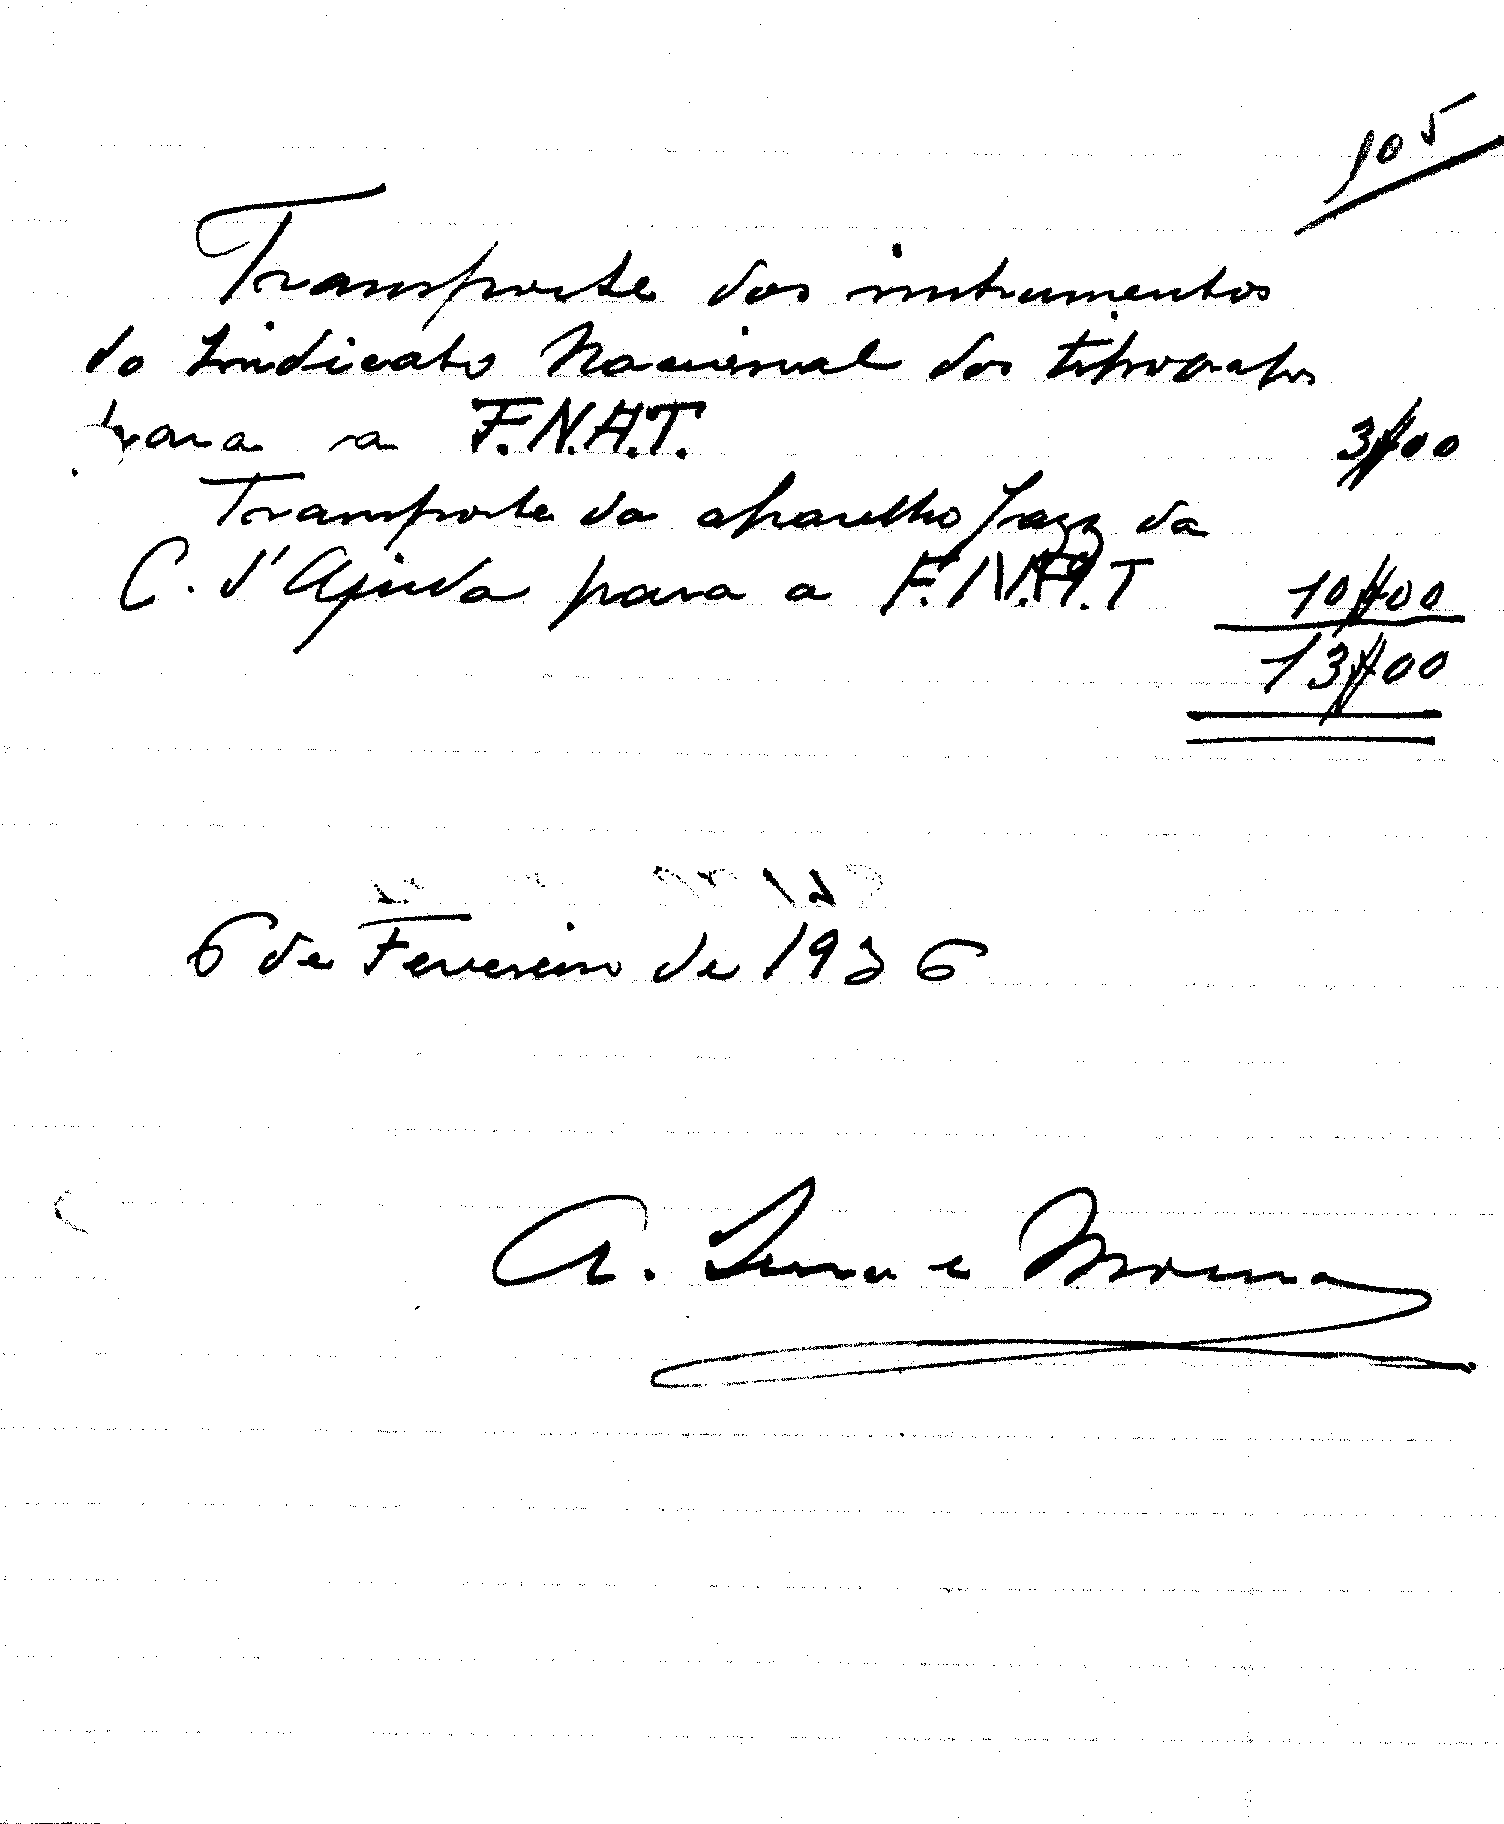 105
Transporte dos instrumentos
do Sindicato Nacional dos tipografos
para a F.N.A.T. 3$00
Transporte do aparelho Jazz da
C. d'Ajuda para a F.N.A.T 10$00
13$00
6 de Fevereiro de 1936
A. e Moura